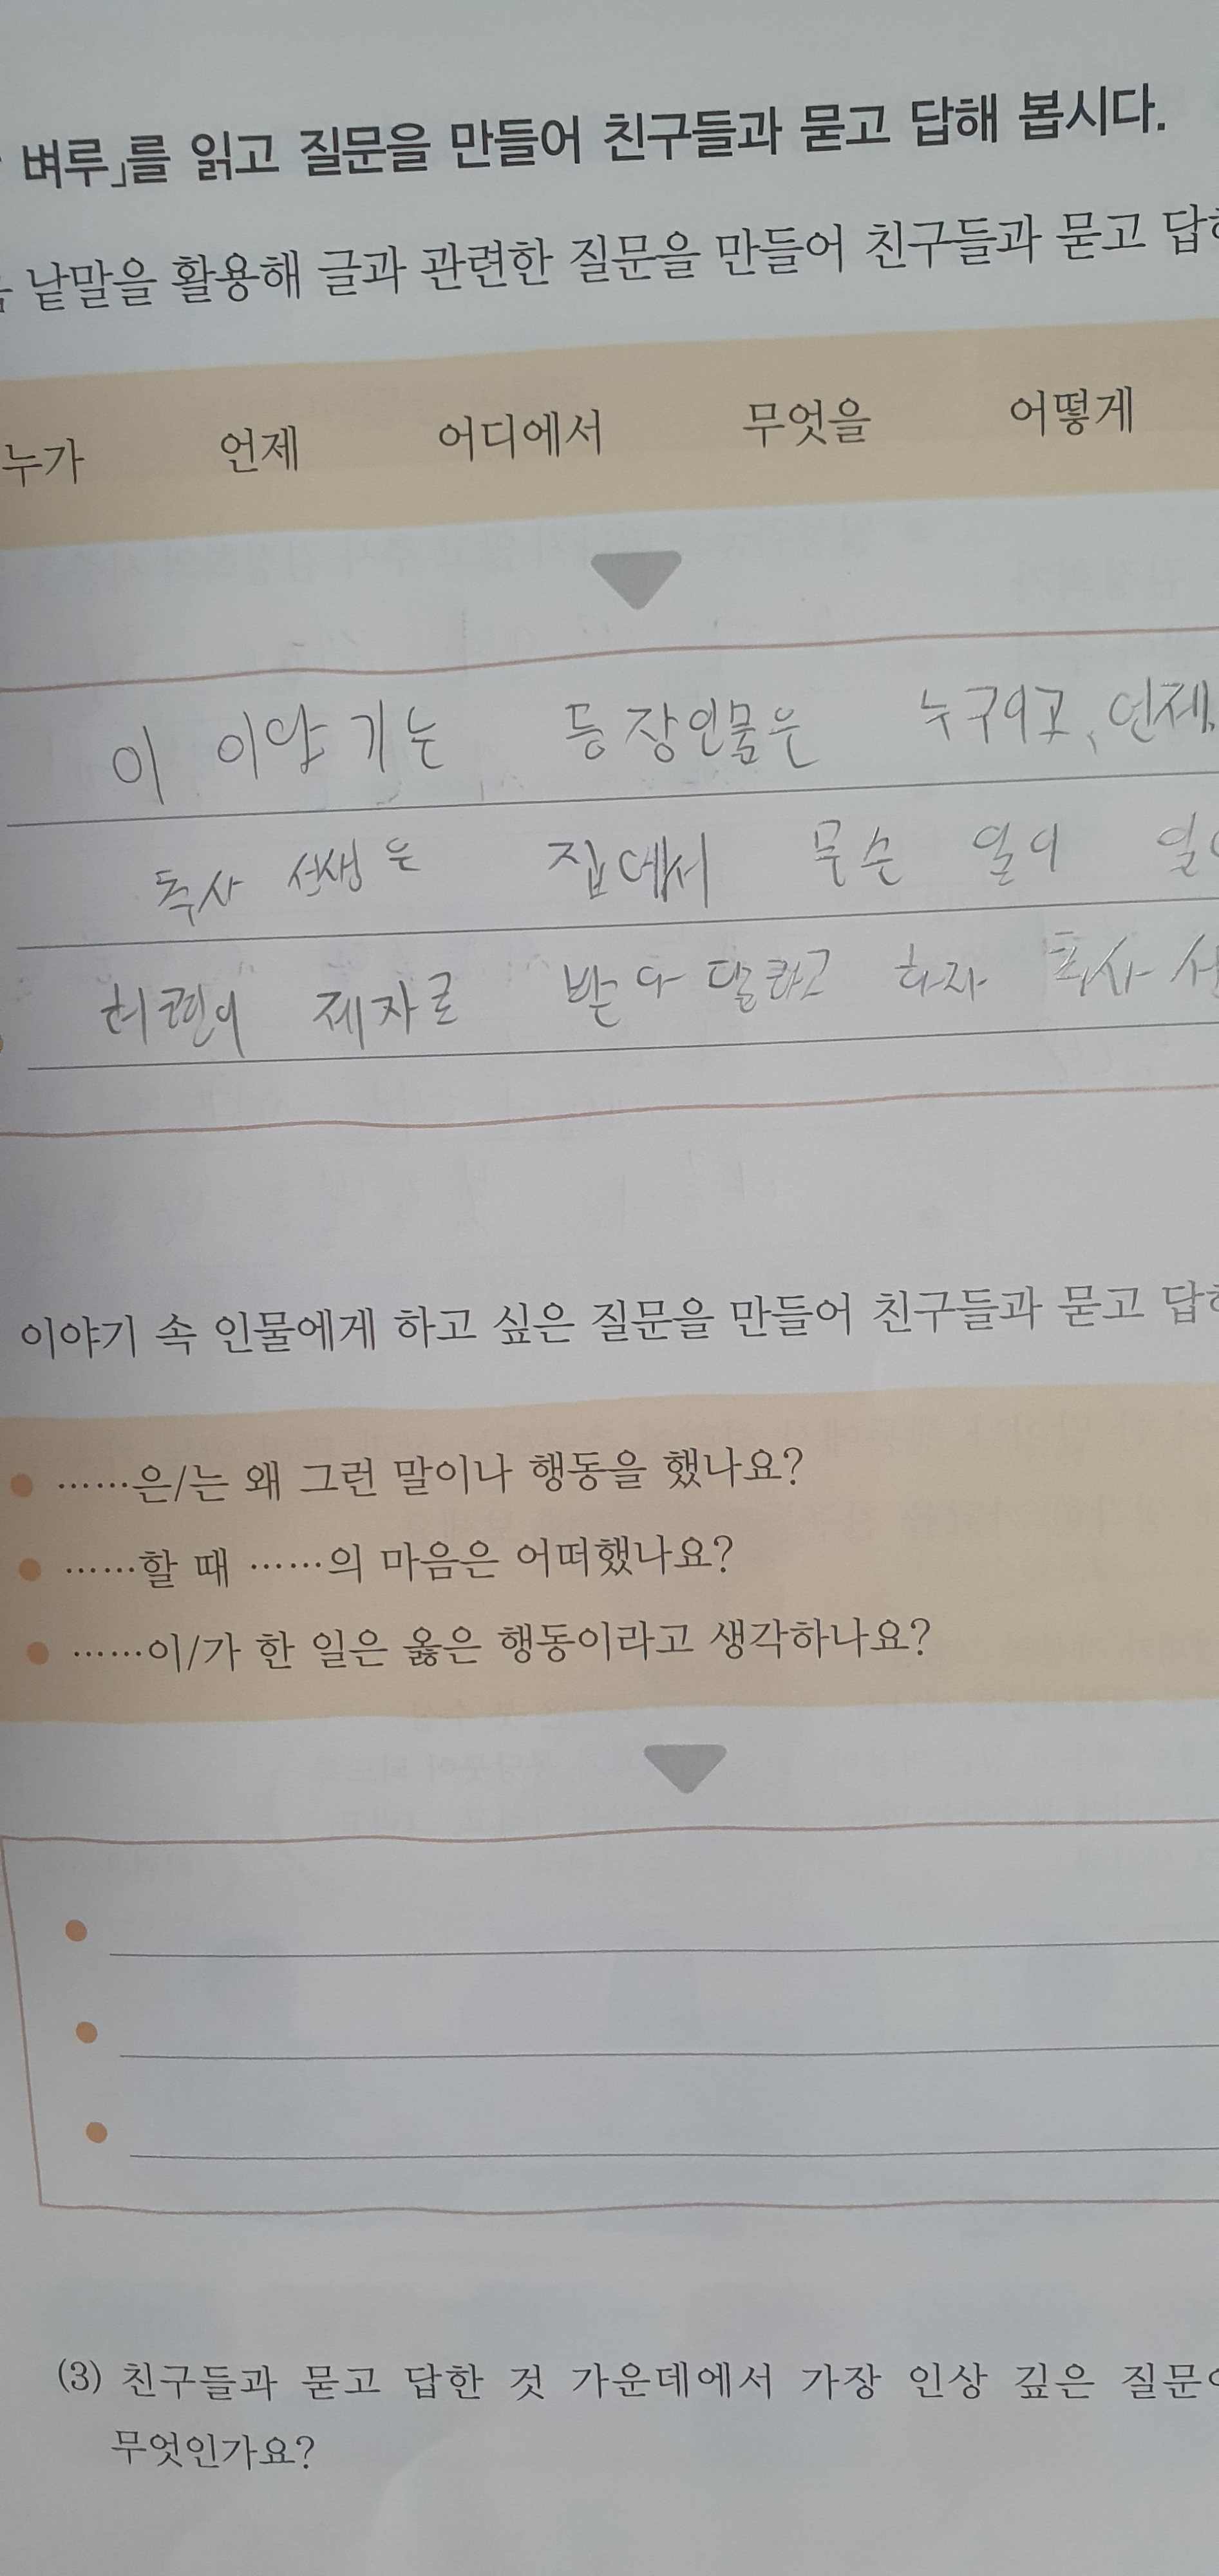 벼루」를 읽고 질문을 만들어 친구들과 묻고 답해 봅시다.
낱말을 활용해 글과 관련한 질문을 만들어 친구들과 묻고 답해
누가 언제 어디에서 무엇을 어떻게
이 이야기는 등장인물은 누구이고, 언제,
추사 선생은 집에서 무슨 일이
허련이 제자로 받아 달라고 하자 추사
이야기 속 인물에게 하고 싶은 질문을 만들어 친구들과 묻고 답해
● ……은/는 왜 그런 말이나 행동을 했나요?
● ……할 때 ……의 마음은 어떠했나요?
● ……이/가 한 일은 옳은 행동이라고 생각하나요?
(3) 친구들과 묻고 답한 것 가운데에서 가장 인상 깊은 질문
무엇인가요?